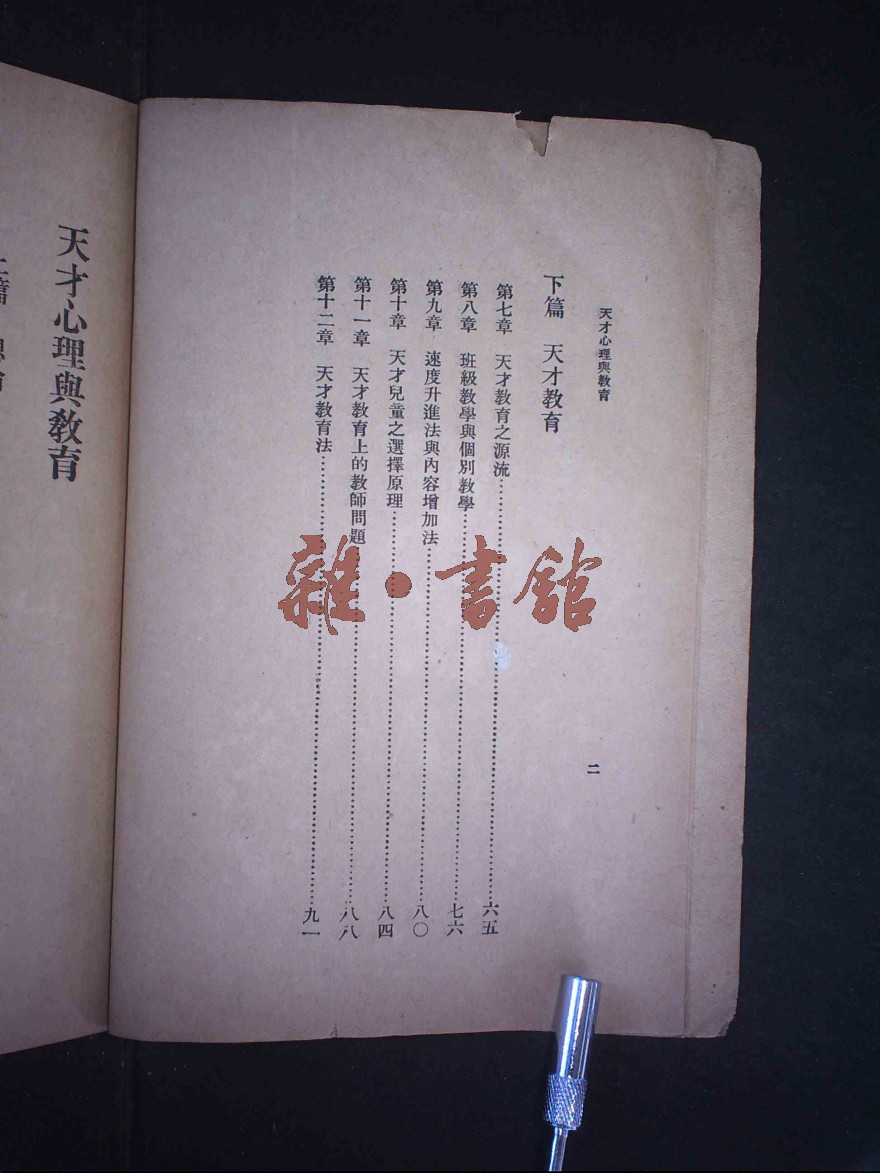 天才心理與教育
二
下篇　天才教育
第七章　天才教育之源流……六五
第八章　班級教學與個別教學……七六
第九章　速度升進法與內容增加法……八〇
第十章　天才兒童之選擇原理……八四
第十一章　天才教育上的教師問題……八八
第十二章　天才教育法……九一
雜·書館
天才心理與教育